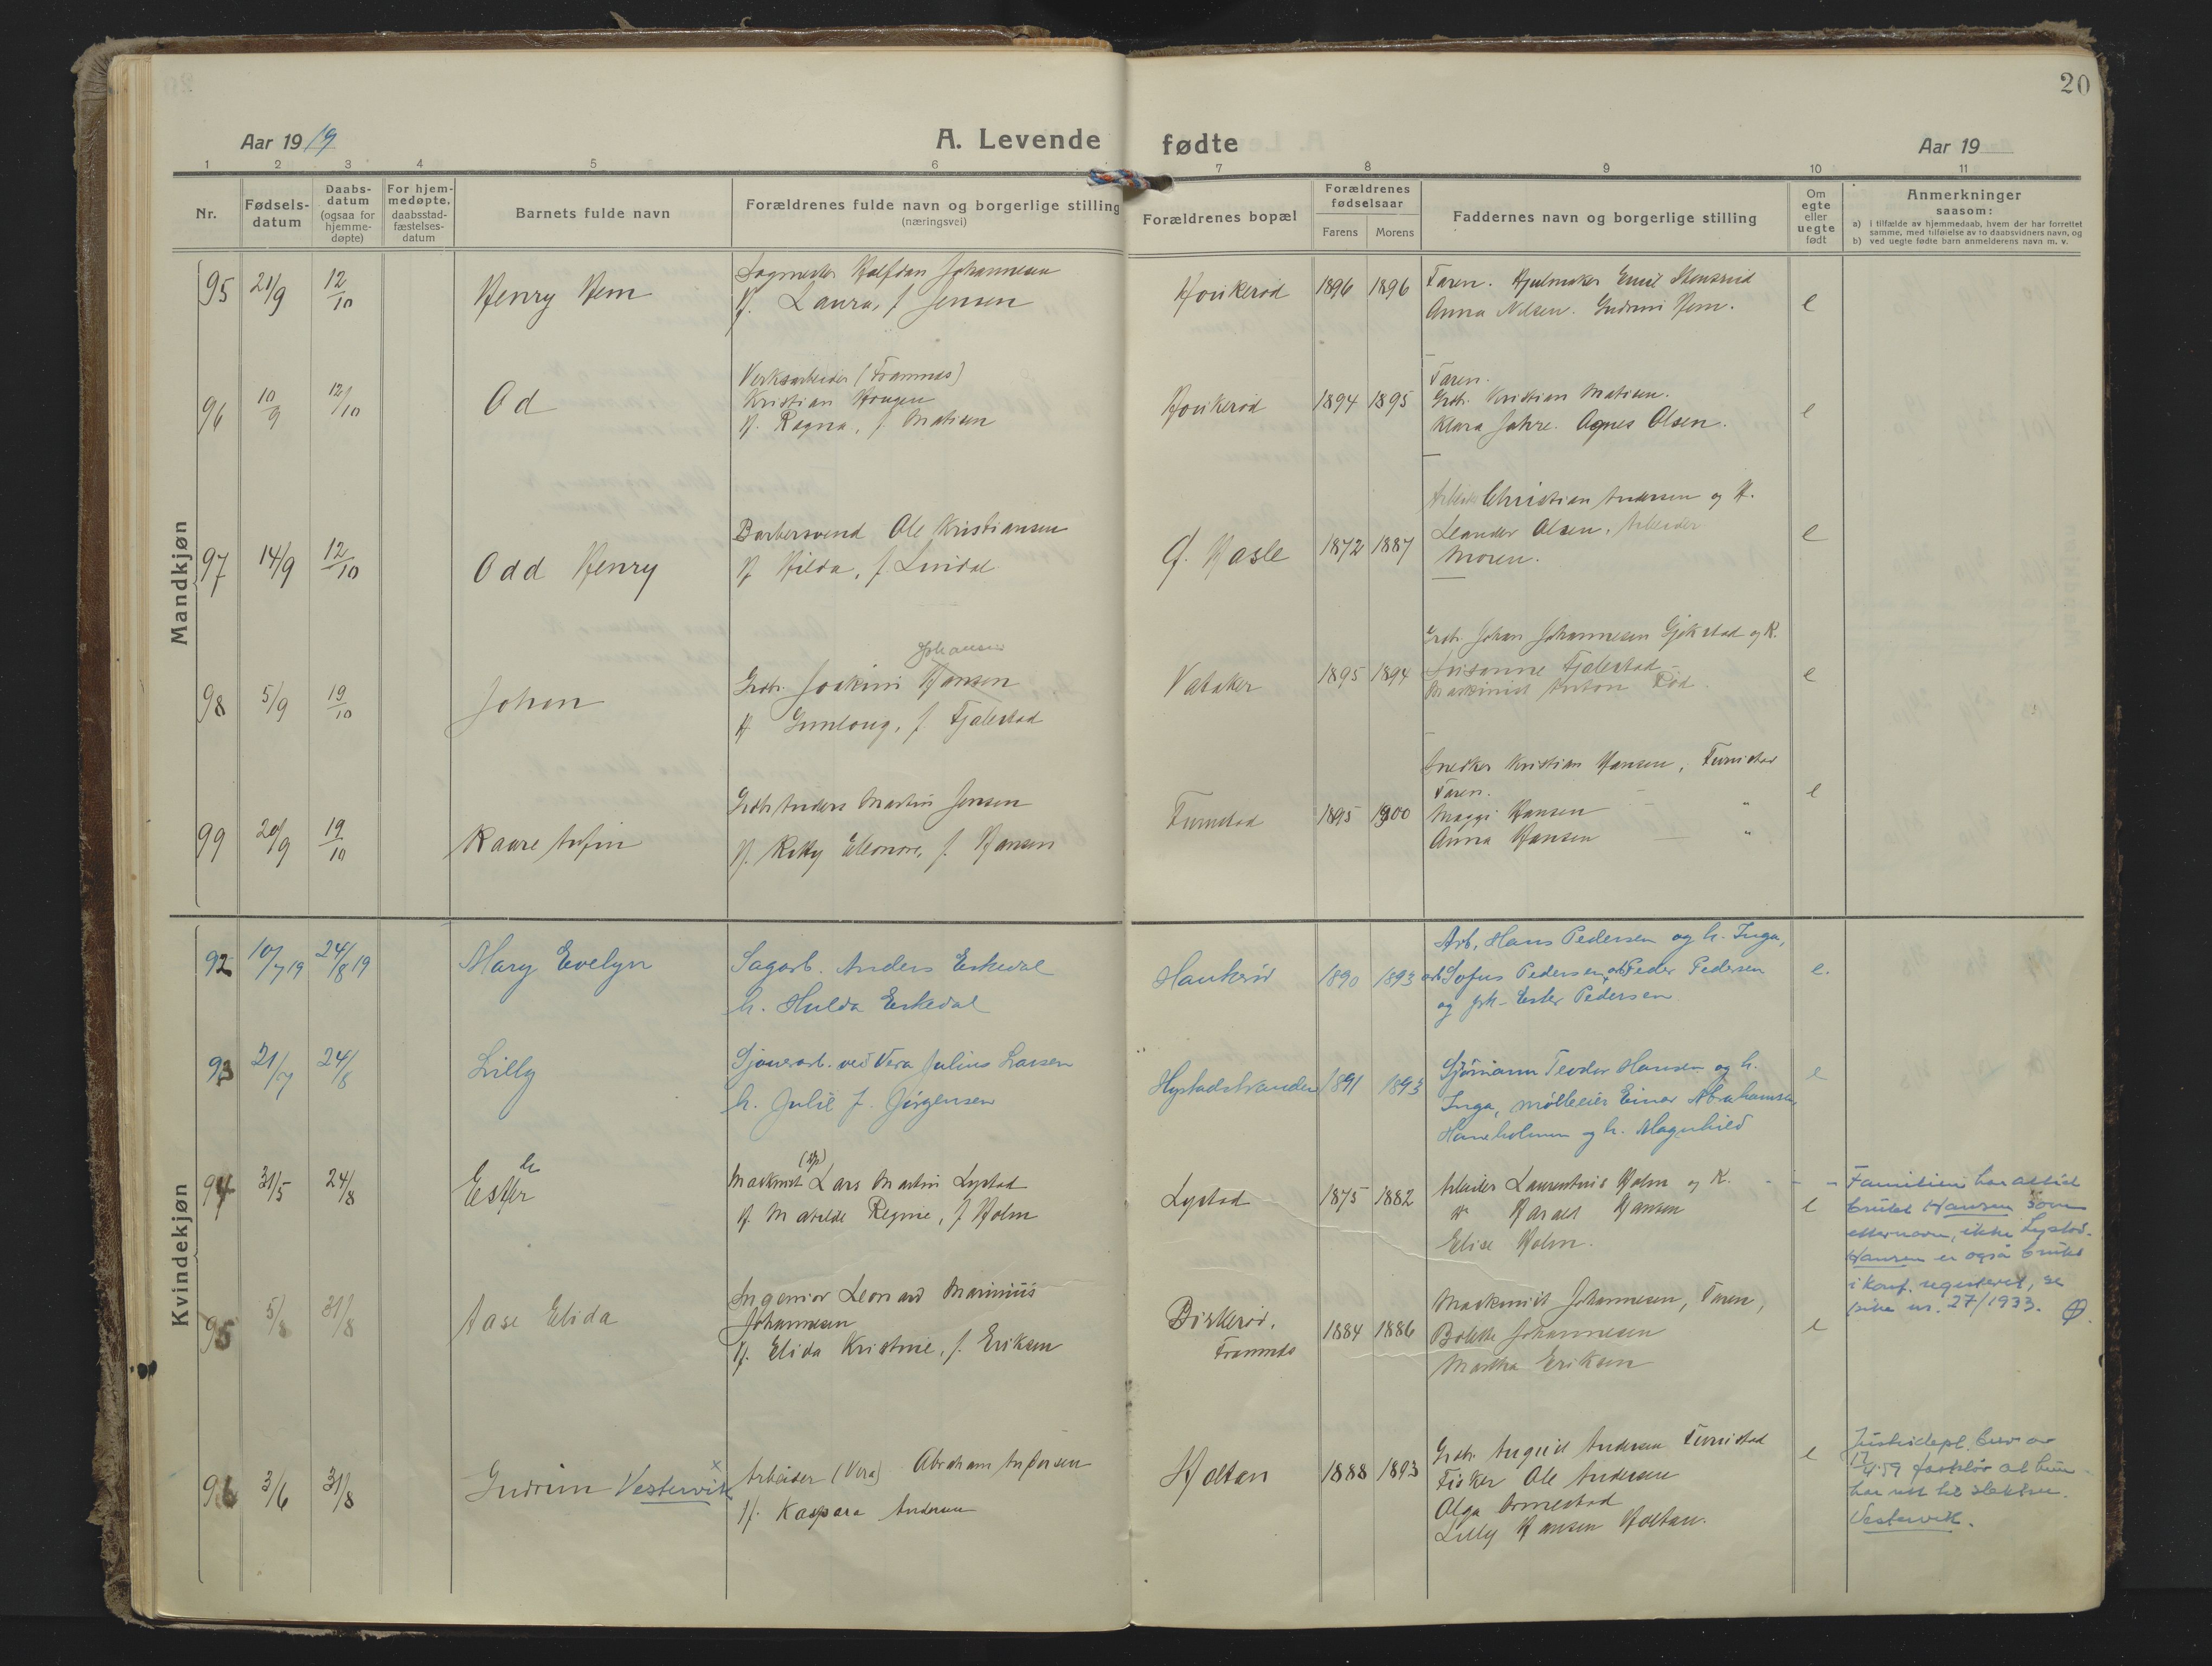 20
Aar 1919
A. Levende fødte
Aar 19
1 2 3 4 5 6 7 8 9 10 11
Nr.
Fødsels-
datum
Daabs-
datum
(ogsaa for
hjemme-
døpte)
For hjem-
medøpte,
daabsstad-
fæstelses-
datum
Barnets fulde navn
Forældrenes fulde navn og borgerlige stilling
(næringsvei)
Forældrenes bopæl
Forældrenes
fødselsaar
Farens Morens
Faddernes navn og borgerlige stilling
Om
egte
eller
uegte
født
Anmerkninger
saasom:
a) i tilfælde av hjemmedaab, hvem der har forrettet
samme, med tilføielse av to daabsvidners navn, og
b) ved uegte fødte barn anmelderens navn m. v.
Mandkjøn
95 21/9 12/10 Henry Hem
Sagmester Halfdan Johannesen
H. Laura, f Jensen
Houkerød 1896 1896
Faren. Hjulmaker Emil Stensrud
Anna Nilsen. Gudrun Hem.
e
96 10/9 12/10 Od
Verksarbeider (Framnæs)
Kristian Haugen
H. Ragna, f. Matisen
Houkerød 1894 1895
Faren.
Grdb. Kristian Matisen.
Klara Jahre. Agnes Olsen.
e
97 14/9 12/10 Odd Henry
Barbersvend Ole Kristiansen
H Hilda, f. Lindal
G. Hasle 1872 1887
Arbeid Christian Andersen og H.
Leander Olsen, Arbeider
Moren.
e
98 5/9 19/10 Johan
Johansen
Grdb. Joakim Hansen
H Gunloug, f Fjelestad
Vataker 1895 1894
Grdb. Johan Johannesen Gjekstad og K.
Susanne Fjelestad
Maskinist Anton Rød
e
99 20/9 19/10 Kaare Arfin
Grdb Anders Martin Jensen
H. Kitty Eleonore, f. Hansen
Furustad 1895 1900
Snedker Kristian Hansen, Furustad
Faren.
Maggi Hansen "
Anna Hansen "
e
Kvindekjøn
92 10/7 19 24/8 19 Mary Evelyn
Sagarb. Anders Eskedal
h. Hulda Eskedal
Haukerød 1890 1893
Arb. Hans Pedersen og h. Inga,
arb Sofus Pedersen, arb Peder Pedersen
og frk. Ester Pedersen
e.
93 21/7 24/8 Lilly
Sjauerarb. ved Vera Julius Larsen
h. Julie f. Jørgensen
Hystadstranden 1891 1893
Sjømann Teodor Hansen og h.
Inga, mølleeier Einar Abrahamsen
Haneholmen og h. Magnhild
e
94 31/5 24/8 Esther
Maskinist Lars Martin Lystad
H. Matilde Regine, f Holm
Lystad 1875 1882
Arbeider Laurentius Holm og K.
" Harald Hansen
Elise Holm.
e
Familien har alltid
brukt Hansen som
etternavn, ikke Lystad.
Hansen er også brukt
i konf. registeret, se
pike nr. 27/1933.
95 5/8 31/8 Aase Elida
Ingeniør Leonard Marinius
Johannesen
H. Elida Kristine, f. Eriksen
Birkerød.
Framnæs
1884 1886
Maskinist Johannesen, Faren,
Bolette Johannesen
Martha Eriksen
e
96 3/6 31/8 Gudrun Vestervik x
Arbeider (Vera) Abraham Andersen
H. Kaspara Andersen
Holtan 1888 1893
Grdb. August Andersen Furustad
Fisker Ole Andersen
Olga Ormestad
Lilly Hansen Holtan.
e
Justisdept. brev av
17/4.59 fastslår at hun
har rett til slektsn.
Vestervik.